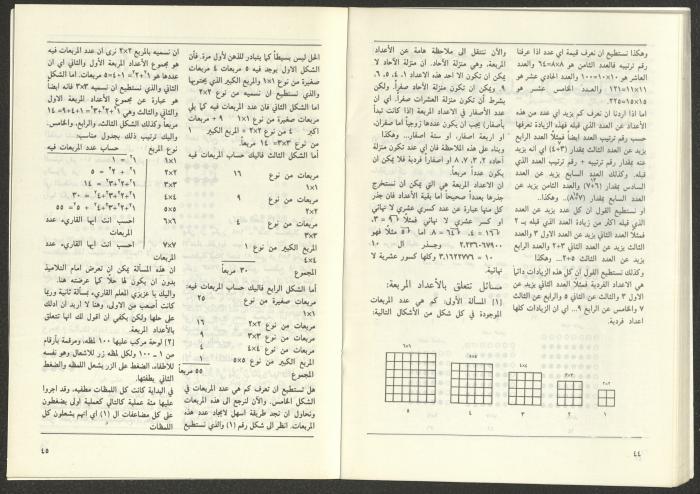 وهكذا نستطيع ان نعرف قيمة اي عدد اذا عرفنا
رقم ترتيبه فالعدد الثامن هو ٨×٨=٦٤ والعدد
العاشر هو ١٠×١٠=١٠٠ والعدد الحادي عشر هو
١١×١١=١٢١ والعدد الخامس عشر هو
١٥×١٥=٢٢٥.
اما اذا اردنا ان نعرف كم يزيد اي عدد من هذه
الأعداد عن العدد الذي قبله فهذه الزيادة نعرفها
حسب رقم ترتيب العدد ايضاً فمثلاً العدد الرابع
يزيد عن العدد الثالث بمقدار (٣+٤) اي انه يزيد
عنه بمقدار رقم ترتيبه + رقم ترتيب العدد الذي
قبله. وكذلك العدد السابع يزيد عن العدد
السادس بمقدار (٦+٧) والعدد الثامن يزيد عن
العدد السابع بمقدار (٧+٨). وهكذا
او نستطيع القول ان كل عدد يزيد عن العدد
الذي قبله اكثر من زيادة العدد الذي قبله بـ ٢
فمثلاً العدد الثاني يزيد عن العدد الاول ٣ والعدد
الثالث يزيد عن العدد الثاني ٣+٢ والعدد الرابع
يزيد عن العدد الثالث ٥+٢... وهكذا
وكذلك نستطيع القول ان كل هذه الزيادات دائماً
هي الاعداد الفردية فمثلاً العدد الثاني يزيد عن
الاول ٣ والثالث عن الثاني ٥ والرابع عن الثالث
٧ والخامس عن الرابع ٩... اي ان الزيادات كلها
اعداد فردية.
والآن ننتقل الى ملاحظة هامة عن الأعداد
المربعة، وهي منزلة الآحاد. ان منزلة الآحاد لا
يمكن ان تكون الا احد هذه الاعداد ١، ٤، ٥، ٦،
٩ ويمكن ان تكون منزلة الآحاد صفراً. ولكن
بشرط أن تكون منزلة العشرات صفراً. اي ان
عدد الأصفار في الاعداد المربعة (إذا كانت تبدأ
بأصفار) يجب ان يكون عددها زوجياً اما صفران،
او اربعة اصفار، او ستة اصفار... وهكذا.
وبناء على هذه الملاحظة فان اي عدد تكون منزلة
آحاده ٢، ٣، ٧، ٨ او اصفاراً فردية فلا يمكن ان
يكون عدداً مربعاً.
ان الاعداد المربعة هي التي يمكن ان نستخرج
جذرها بعدداً صحيحاً اما بقية الأعداد فان جذر
كل منها عبارة عن عدد كسري عشري لا نهائي
او كسر عشري لا نهائي فمثلاً √٩ = ٣،
√١٦ = ٤، √٦٤ = ٨. اما √٥ مثلاً فهو
نهائية.
مسائل تتعلق بالأعداد المربعة:
(١) المسألة الأولى، كم هي عدد المربعات
الموجودة في كل شكل من الأشكال التالية:
٦×٦
٥×٥
٤×٤
٣×٣
٢×٢
٥
٤
٣
٢
١
٤٤
الحل ليس بسيطاً كما يتبادر للذهن لأول مرة. فأن
الشكل الاول يوجد فيه ٥ مربعات ٤ مربعات
صغيرة من نوع ١×١ والمربع الكبير الذي يحتويها
والذي نستطيع ان نسميه من نوع ٢×٢
اما الشكل الثاني فان عدد المربعات فيه كما يلي
مربعات صغيرة من نوع ١×١ ٩ + مربعات
اكبر ٤ من نوع ٢×٢ + المربع الكبير ١
من نوع ٣×٣= ١٤ مربعاً.
أما الشكل الثالث فاليك حساب المربعات فيه
مربعات من نوع ١٦
١×١
مربعات من نوع ٩
٢×٢
مربعات من نوع ٤
٣×٣
المربع الكبير من نوع ١
٤×٤
المجموع ٣٠ مربعاً
اما الشكل الرابع فاليك حساب المربعات فيه:
مربعات صغيرة من نوع ٢٥
١×١
مربعات من نوع ٢×٢ ١٦
مربعات من نوع ٣×٣ ٩
مربعات من نوع ٤×٤ ٤
المربع الكبير من نوع ٥×٥ ١
المجموع ٥٥ مربعاً
هل نستطيع ان نعرف كم هي عدد المربعات في
الشكل الخامس. والآن لنرجع الى هذه المربعات
ونحاول ان نجد طريقة اسهل لايجاد عدد هذه
المربعات. انظر الى شكل رقم (١) والذي نستطيع
ان نسميه بالمربع ٢×٢ نرى ان عدد المربعات فيه
هو مجموع الأعداد المربعة الأول والثاني اي ان
عددها هو ١²+٢²= ١+٤=٥ مربعات. اما الشكل
الثاني والذي نستطيع ان نسميه ٣×٣ فانه ايضاً
هو عبارة عن مجموع الأعداد المربعة الاول
والثاني والثالث وهي ١²+٢²+٣²=١+٤+٩= ١٤
مربعاً وكذلك الشكل الثالث، والرابع، والخامس.
واليك ترتيب ذلك بجدول مناسب.
نوع المربع حساب عدد المربعات فيه
١×١ ١² = ١
٢×٢ ١² + ٢² = ٥
٣×٣ ١²+٢²+٣² = ١٤
٤×٤ ١²+٢²+٣²+٤² = ٣٠
٥×٥ ١²+٢²+٣²+٤²+٥² = ٥٥
٦×٦ احسب انت ايها القاريء عدد
المربعات
٧×٧ احسب انت ايها القاريء عدد
المربعات
ان هذه المسألة يمكن ان تعرض امام التلاميذ
بدون ان يكون لها حلاً كما عرضته هنا.
واليك يا عزيزي المعلم القاريء بمسألة ثانية وربما
كانت أصعب من الأولى، وهنا لا اريد ان ادلك
على حلها ولكن يكفي ان اقول لك انها تتعلق
بالأعداد المربعة.
(٢) لوحة مركب عليها ١٠٠ لمظه، ومرقمة بأرقام
من ١ – ١٠٠ ولكل لمظه زر للاشعال وهو نفسه
للاطفاء، الضغط على الزر يشعل اللمظه والضغط
الثاني يطفئها.
في البداية كانت كل اللمظات مطفيه، وقد اجروا
عليها مئة عملية كالتالي كعملية اولى يضغطون
على كل مضاعفات ال (١) اي انهم يشعلون كل
اللمظات
٤٥